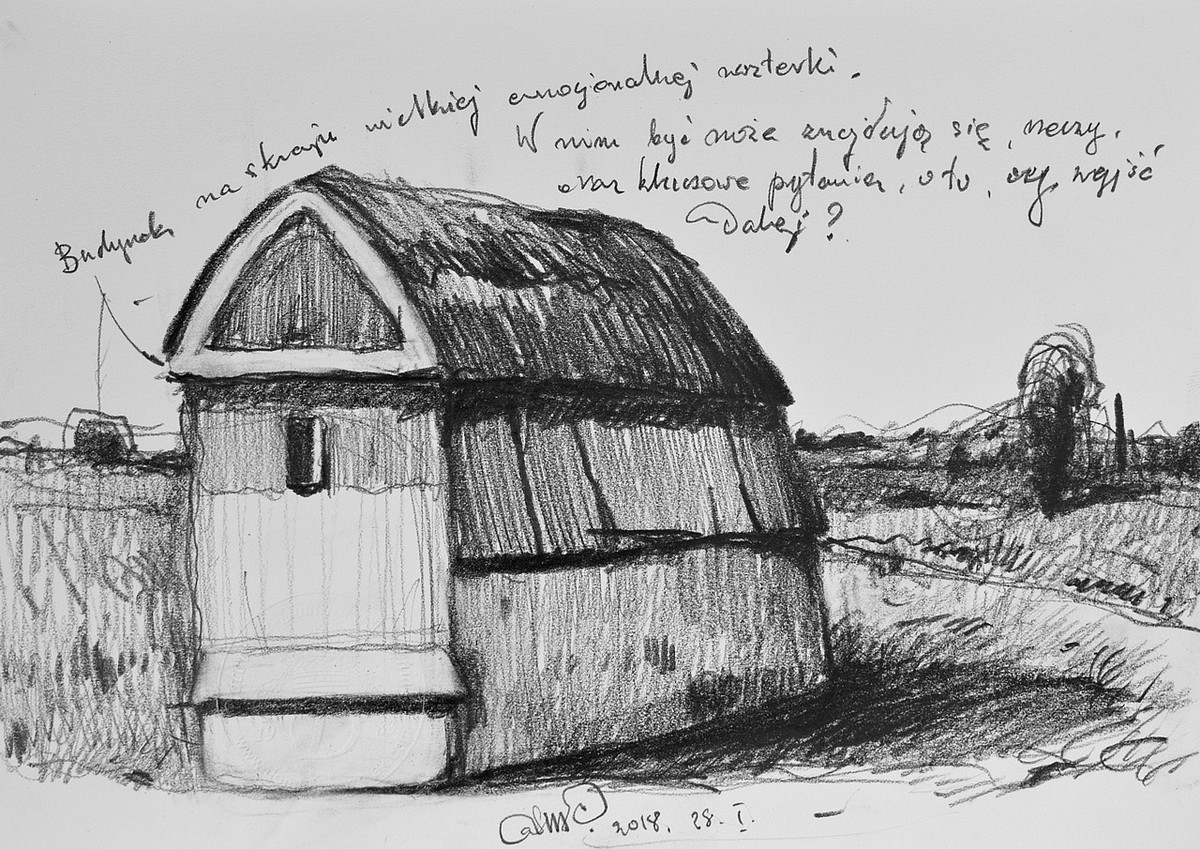 Budynek na skraju wielkiej emocjonalnej rozterki.
W nim być może znajdują się, rzeczy,
oraz kluczowe pytania, o to, czy wejść
Dalej?
2018. 28. I.